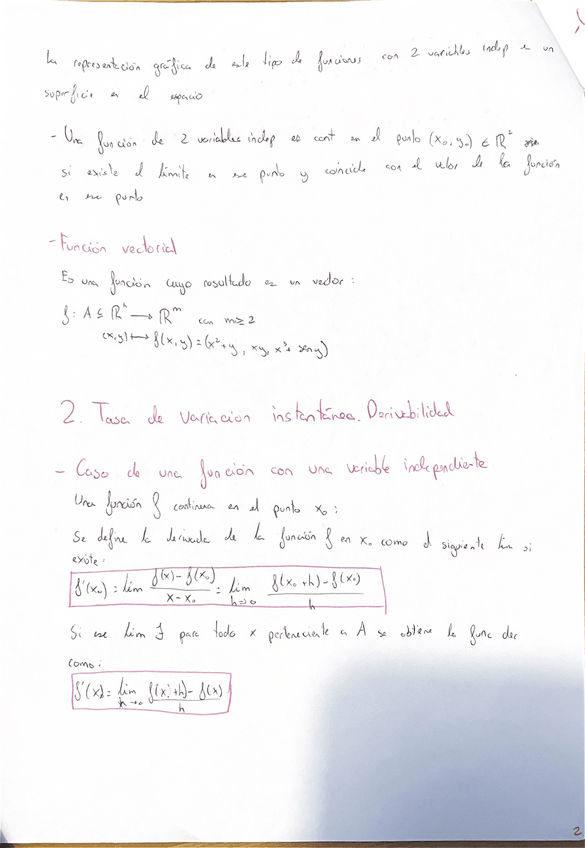 La representación gráfica de este tipo de funciones con 2 variables indep es un
superficie en el espacio
- Una función de 2 variables indep es cont en el punto (x₀, y₀) ∈ ℝ²
si existe el límite en ese punto y coincide con el valor de la función
en ese punto
- Función vectorial
Es una función cuyo resultado es un vector:
f: A ⊆ ℝⁿ → ℝᵐ con m ≥ 2
(x,y) ↦ f(x,y) = (x²+y, xy, x³+ sen y)
2. Tasa de variación instantánea. Derivabilidad
- Caso de una función con una variable independiente
Una función f continua en el punto x₀:
Se define la derivada de la función f en x₀ como el siguiente lim si
existe:
f'(x₀) = lim f(x) - f(x₀) / x - x₀ = lim h→0 f(x₀+h) - f(x₀) / h
Si ese lim ∃ para todo x perteneciente a A se obtiene la func der
como:
f'(x) = lim h→0 f(x)+h) - f(x) / h
2